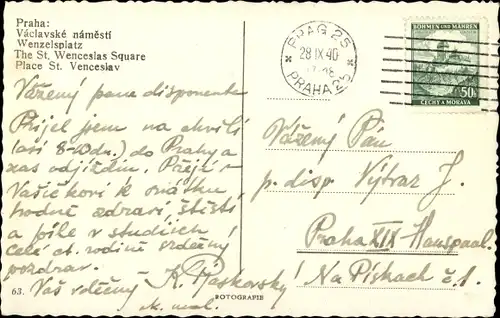 Praha:
Václavské náměstí
Wenzelsplatz
The St. Wenceslas Square
Place St. Venceslav
PRAG 25
28 IX 40
PRAHA 25
BÖHMEN UND MÄHREN
50h
ČECHY A MORAVA
Vážený pane disponente
Přijel jsem na chvíli
(asi 8-10 dn.) do Prahy a
zas odjíždím. Přeji
Vašíčkovi k svátku
hodně zdraví, štěstí
a píle v studiích!
Celé ct. rodině srdečný
pozdrav.
Váš vděčný - K. Raskovský
ak. mal.
Vážený Pán
p. disp. Výtvar J.
Praha XIX
Na Pískách č. 1.
63.
FOTOGRAFIE